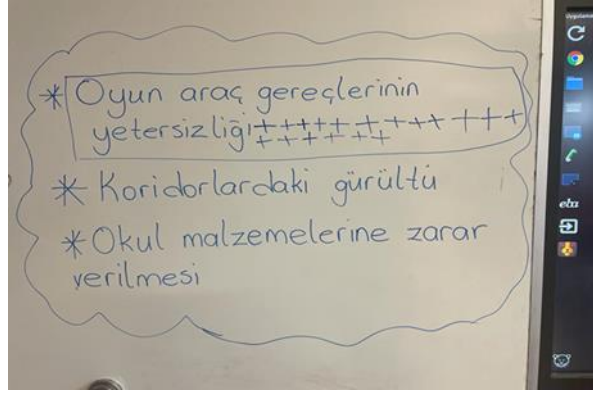 * Oyun araç gereçlerinin
yetersizliği +++++ + ++++ +++
+ + + + ++
* Koridorlardaki gürültü
* Okul malzemelerine zarar
verilmesi
eba